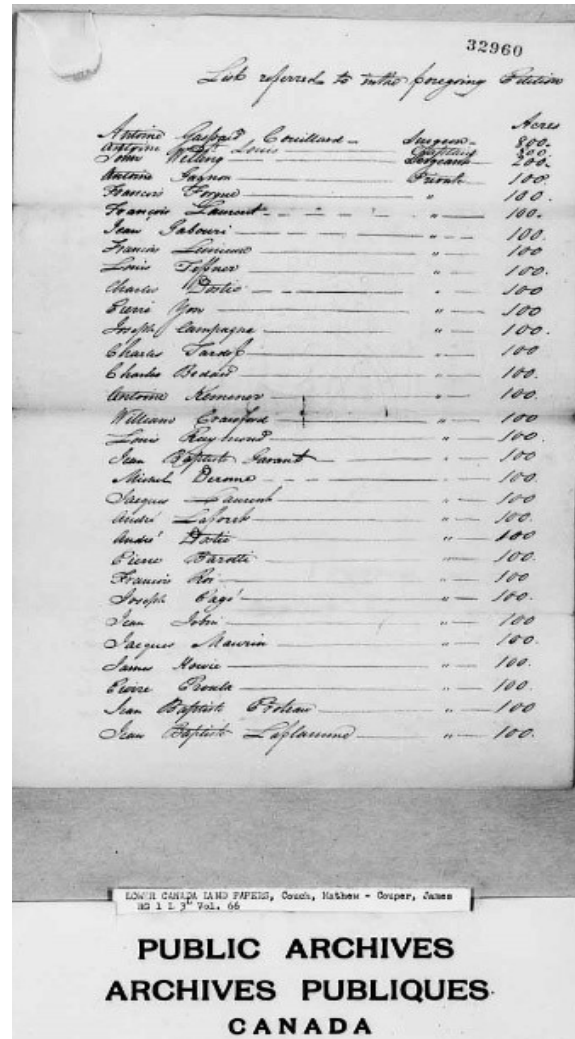 32960
List referred to in the foregoing Petition
Acres
Antoine Gaspard Couillard - Surgeon - 800.
Antoine Louis Captain 800.
John Welling Sergeant 200.
Antoine Gagnon Private 100.
Francois Forgue " 100.
François Laurent " 100.
Jean Gabouri " 100.
Francis Lemieux " 100
Louis Teffner " 100
Charles Dostie " 100
Pierre Yon " 100
Joseph Campagne " 100.
Charles Tardif " 100
Charles Bedard " 100.
Antoine Kemener " 100
William Crawford " 100
Louis Raymond " 100.
Jean Baptiste Garant " 100
Michel Derome " 100.
Jacques Laurent " 100
André Laforest " 100.
André Dostie " 100
Pierre Barotti " 100.
Francois Roi " 100
Joseph Pagé " 100.
Jean Jobin " 100
Jacques Maurin " 100.
James Howie " 100.
Pierre Proulx " 100.
Jean Baptiste " 100
Jean Baptiste Laflamme " 100.
LOWER CANADA LAND PAPERS, Couch, Mathew - Couper, James
RG 1 L 3L Vol. 66
PUBLIC ARCHIVES
ARCHIVES PUBLIQUES
CANADA